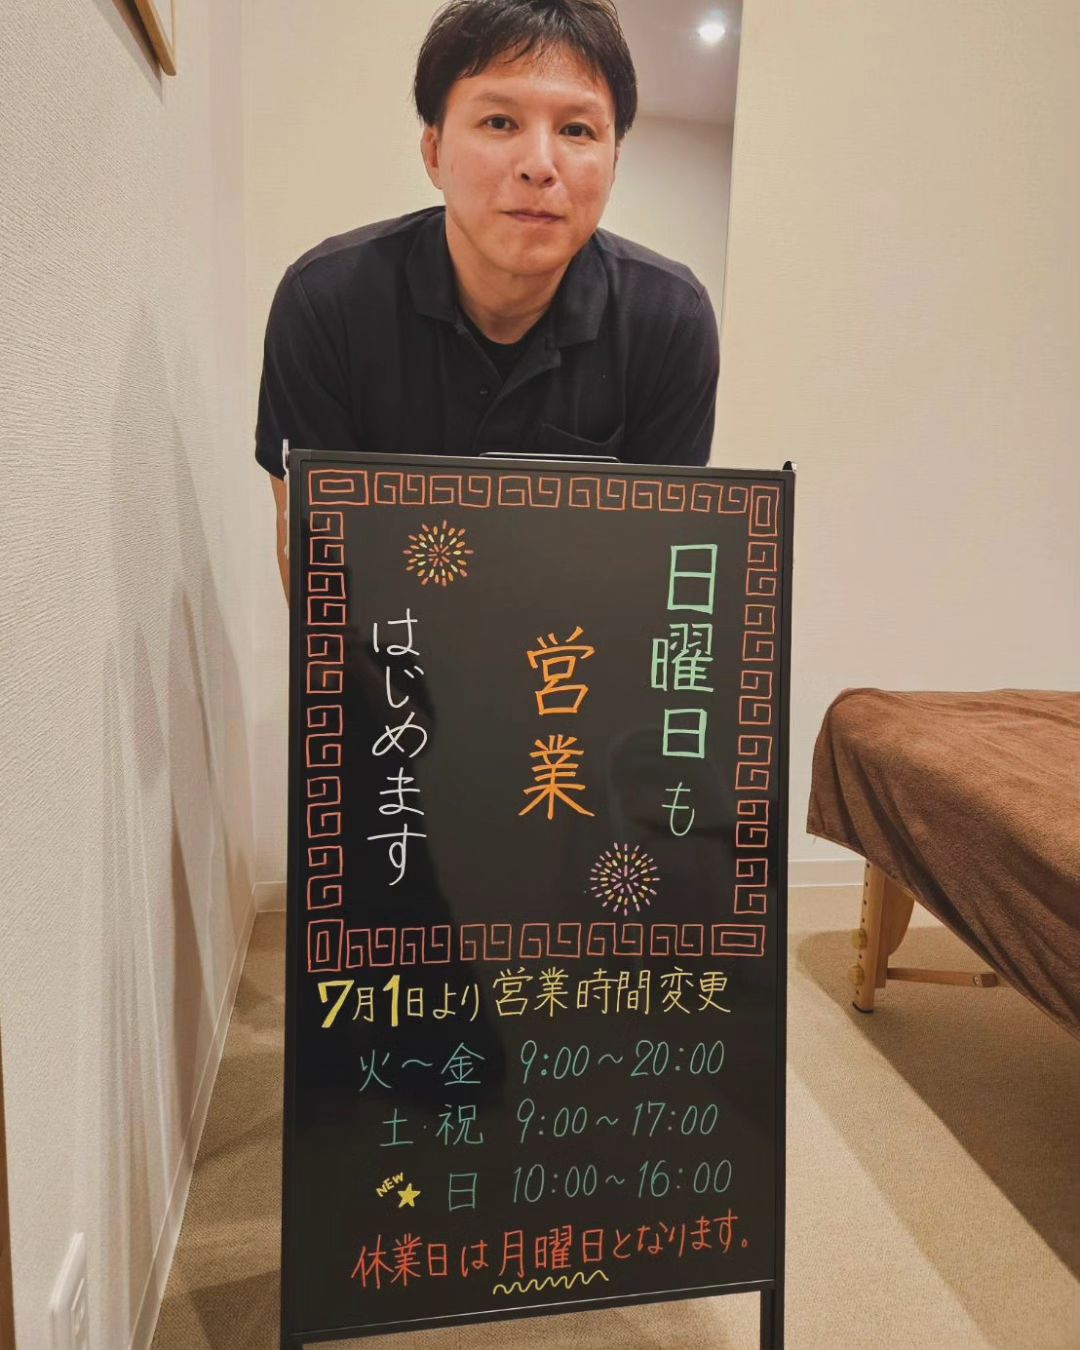 日曜日も
営業
はじめます
7月1日より営業時間変更
火～金 9:00～20:00
土・祝 9:00～17:00
NEW 日 10:00～16:00
休業日は月曜日となります。